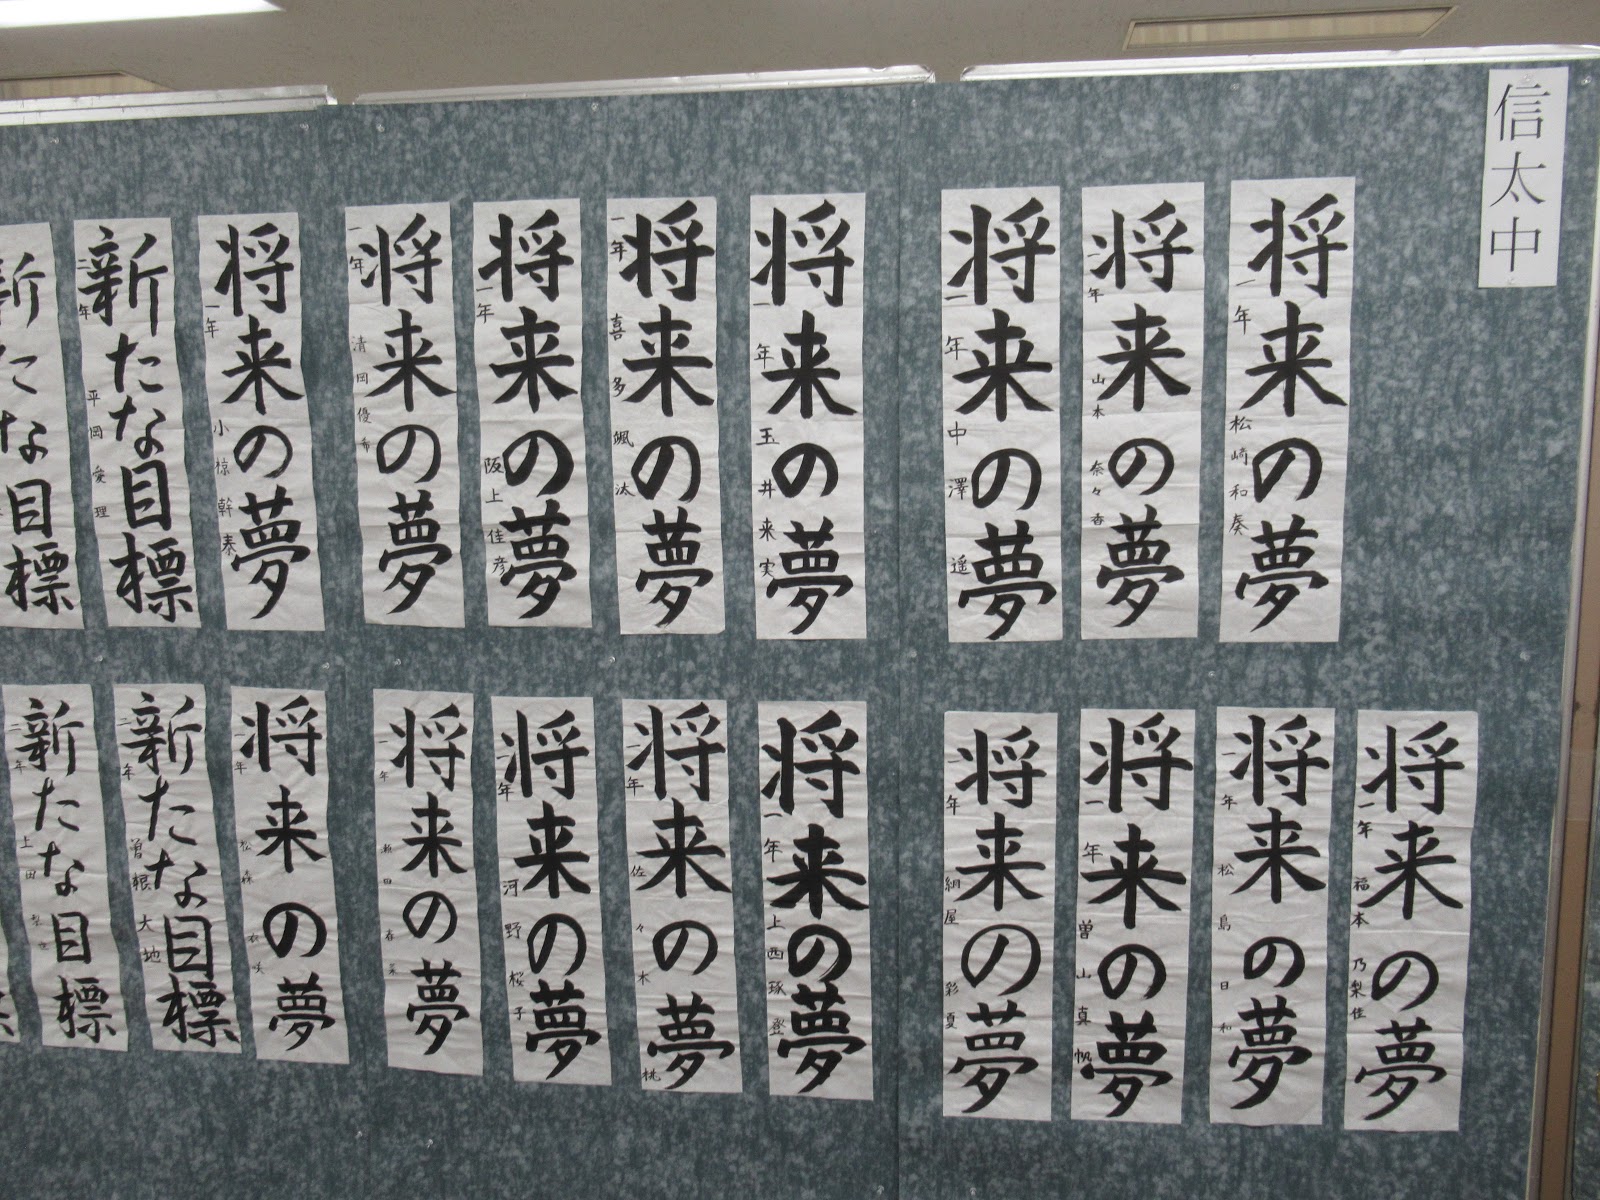 信太中
将来の夢
一年 松崎和奏
将来の夢
一年 山本奈々香
将来の夢
一年 中澤遥
将来の夢
一年 玉井来実
将来の夢
一年 喜多颯汰
将来の夢
一年 阪上佳彦
将来の夢
一年 清岡優希
将来の夢
一年 小椋幹泰
新たな目標
二年 平岡愛理
新たな目標
将来の夢
一年 福本乃梨佳
将来の夢
一年 松島日和
将来の夢
一年 曽山真帆
将来の夢
一年 網屋彩夏
将来の夢
一年 上西琢登
将来の夢
一年 佐々木桃
将来の夢
一年 河野桜子
将来の夢
一年 瀬田春菜
将来の夢
一年 松森衣咲
新たな目標
二年 曽根大地
新たな目標
二年 上田
標